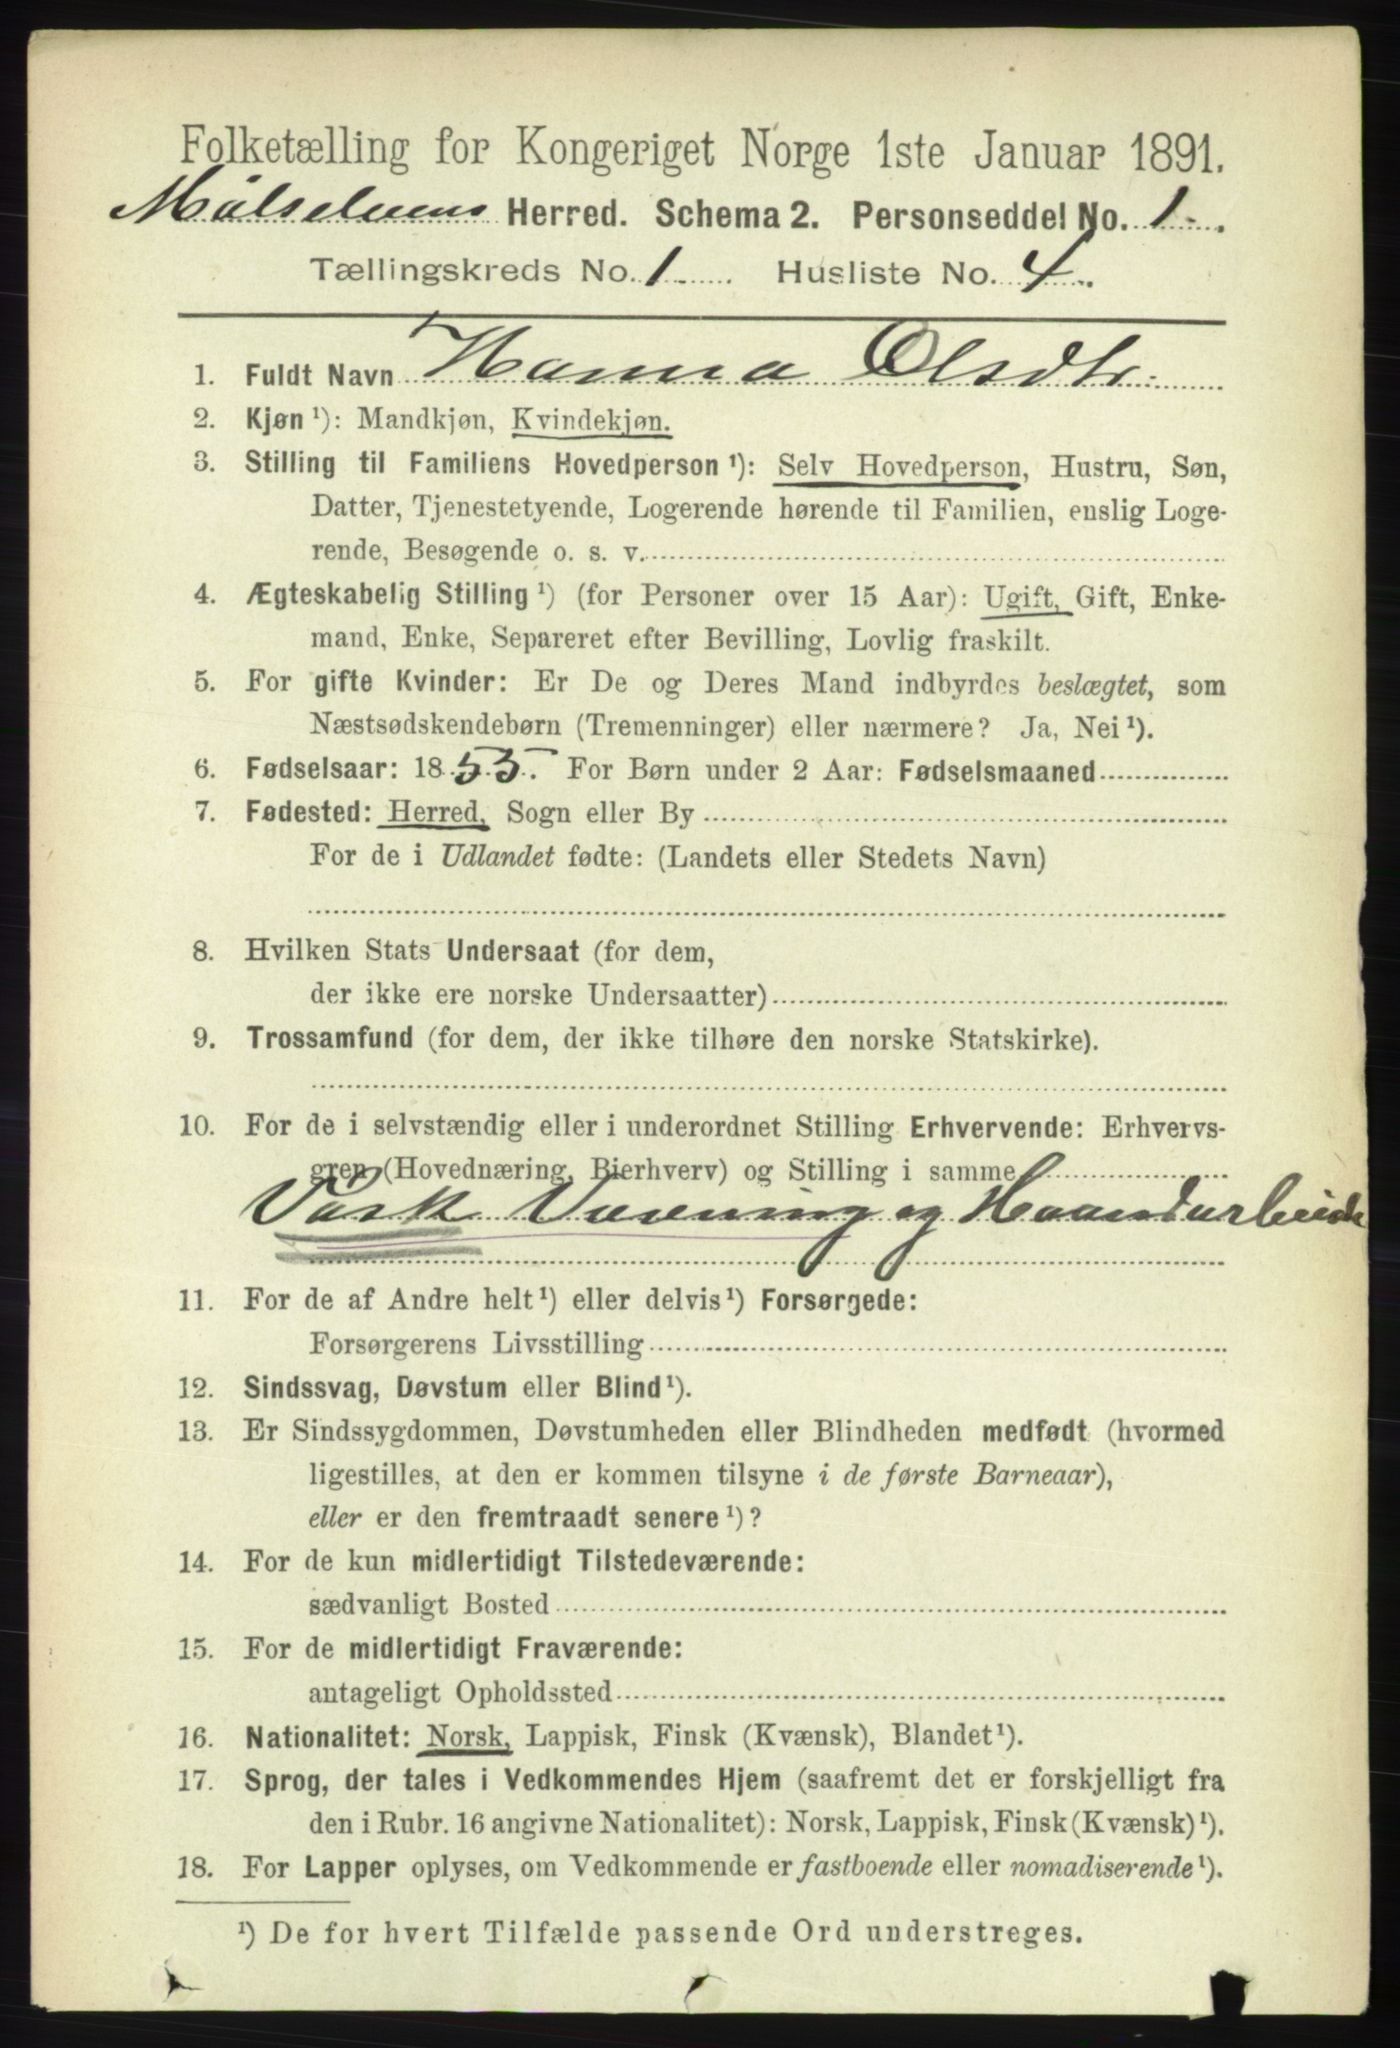 Folketælling for Kongeriget Norge 1ste Januar 1891.
Målselvens Herred. Schema 2. Personseddel No. 1.
Tællingskreds No. 1. Husliste No. 4.
1. Fuldt Navn Hanna Olsdtr.
2. Kjøn ¹): Mandkjøn, Kvindekjøn.
3. Stilling til Familiens Hovedperson ¹): Selv Hovedperson, Hustru, Søn,
Datter, Tjenestetyende, Logerende hørende til Familien, enslig Loge-
rende, Besøgende o. s. v.
4. Ægteskabelig Stilling ¹) (for Personer over 15 Aar): Ugift, Gift, Enke-
mand, Enke, Separeret efter Bevilling, Lovlig fraskilt.
5. For gifte Kvinder: Er De og Deres Mand indbyrdes beslægtet, som
Næstsødskendebørn (Tremenninger) eller nærmere? Ja, Nei ¹).
6. Fødselsaar: 1855. For Børn under 2 Aar: Fødselsmaaned
7. Fødested: Herred, Sogn eller By
For de i Udlandet fødte: (Landets eller Stedets Navn)
8. Hvilken Stats Undersaat (for dem,
der ikke ere norske Undersaatter)
9. Trossamfund (for dem, der ikke tilhøre den norske Statskirke).
10. For de i selvstændig eller i underordnet Stilling Erhvervende: Erhvervs-
gren (Hovednæring, Bierhverv) og Stilling i samme
Vask Vævning og Haandarbeide
11. For de af Andre helt ¹) eller delvis ¹) Forsørgede:
Forsørgerens Livsstilling
12. Sindssvag, Døvstum eller Blind ¹).
13. Er Sindssygdommen, Døvstumheden eller Blindheden medfødt (hvormed
ligestilles, at den er kommen tilsyne i de første Barneaar),
eller er den fremtraadt senere ¹)?
14. For de kun midlertidigt Tilstedeværende:
sædvanligt Bosted
15. For de midlertidigt Fraværende:
antageligt Opholdssted
16. Nationalitet: Norsk, Lappisk, Finsk (Kvænsk), Blandet ¹).
17. Sprog, der tales i Vedkommendes Hjem (saafremt det er forskjelligt fra
den i Rubr. 16 angivne Nationalitet): Norsk, Lappisk, Finsk (Kvænsk) ¹).
18. For Lapper oplyses, om Vedkommende er fastboende eller nomadiserende ¹).
¹) De for hvert Tilfælde passende Ord understreges.